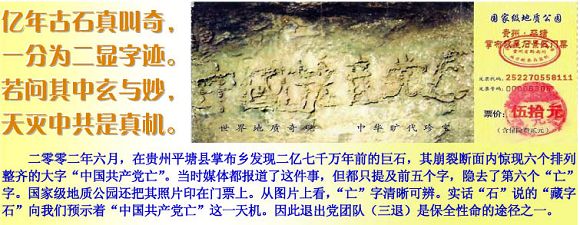 亿年古石真叫奇，
一分为二显字迹。
若问其中玄与妙，
天灭中共是真机。
中国共产党亡
世界地质奇观 中华旷代珍宝
国家级地质公园
贵州·平塘
掌布
发票代码：252270558111
票价：
伍拾元
二零零二年六月，在贵州平塘县掌布乡发现二亿七千万年前的巨石，其崩裂断面内惊现六个排列
整齐的大字“中国共产党亡”。当时媒体都报道了这件事，但都只提及前五个字，隐去了第六个“亡”
字。国家级地质公园还把其照片印在门票上。从图片上看，“亡”字清晰可辨。实话“石”说的“藏字
石”向我们预示着“中国共产党亡”这一天机。因此退出党团队（三退）是保全性命的途径之一。